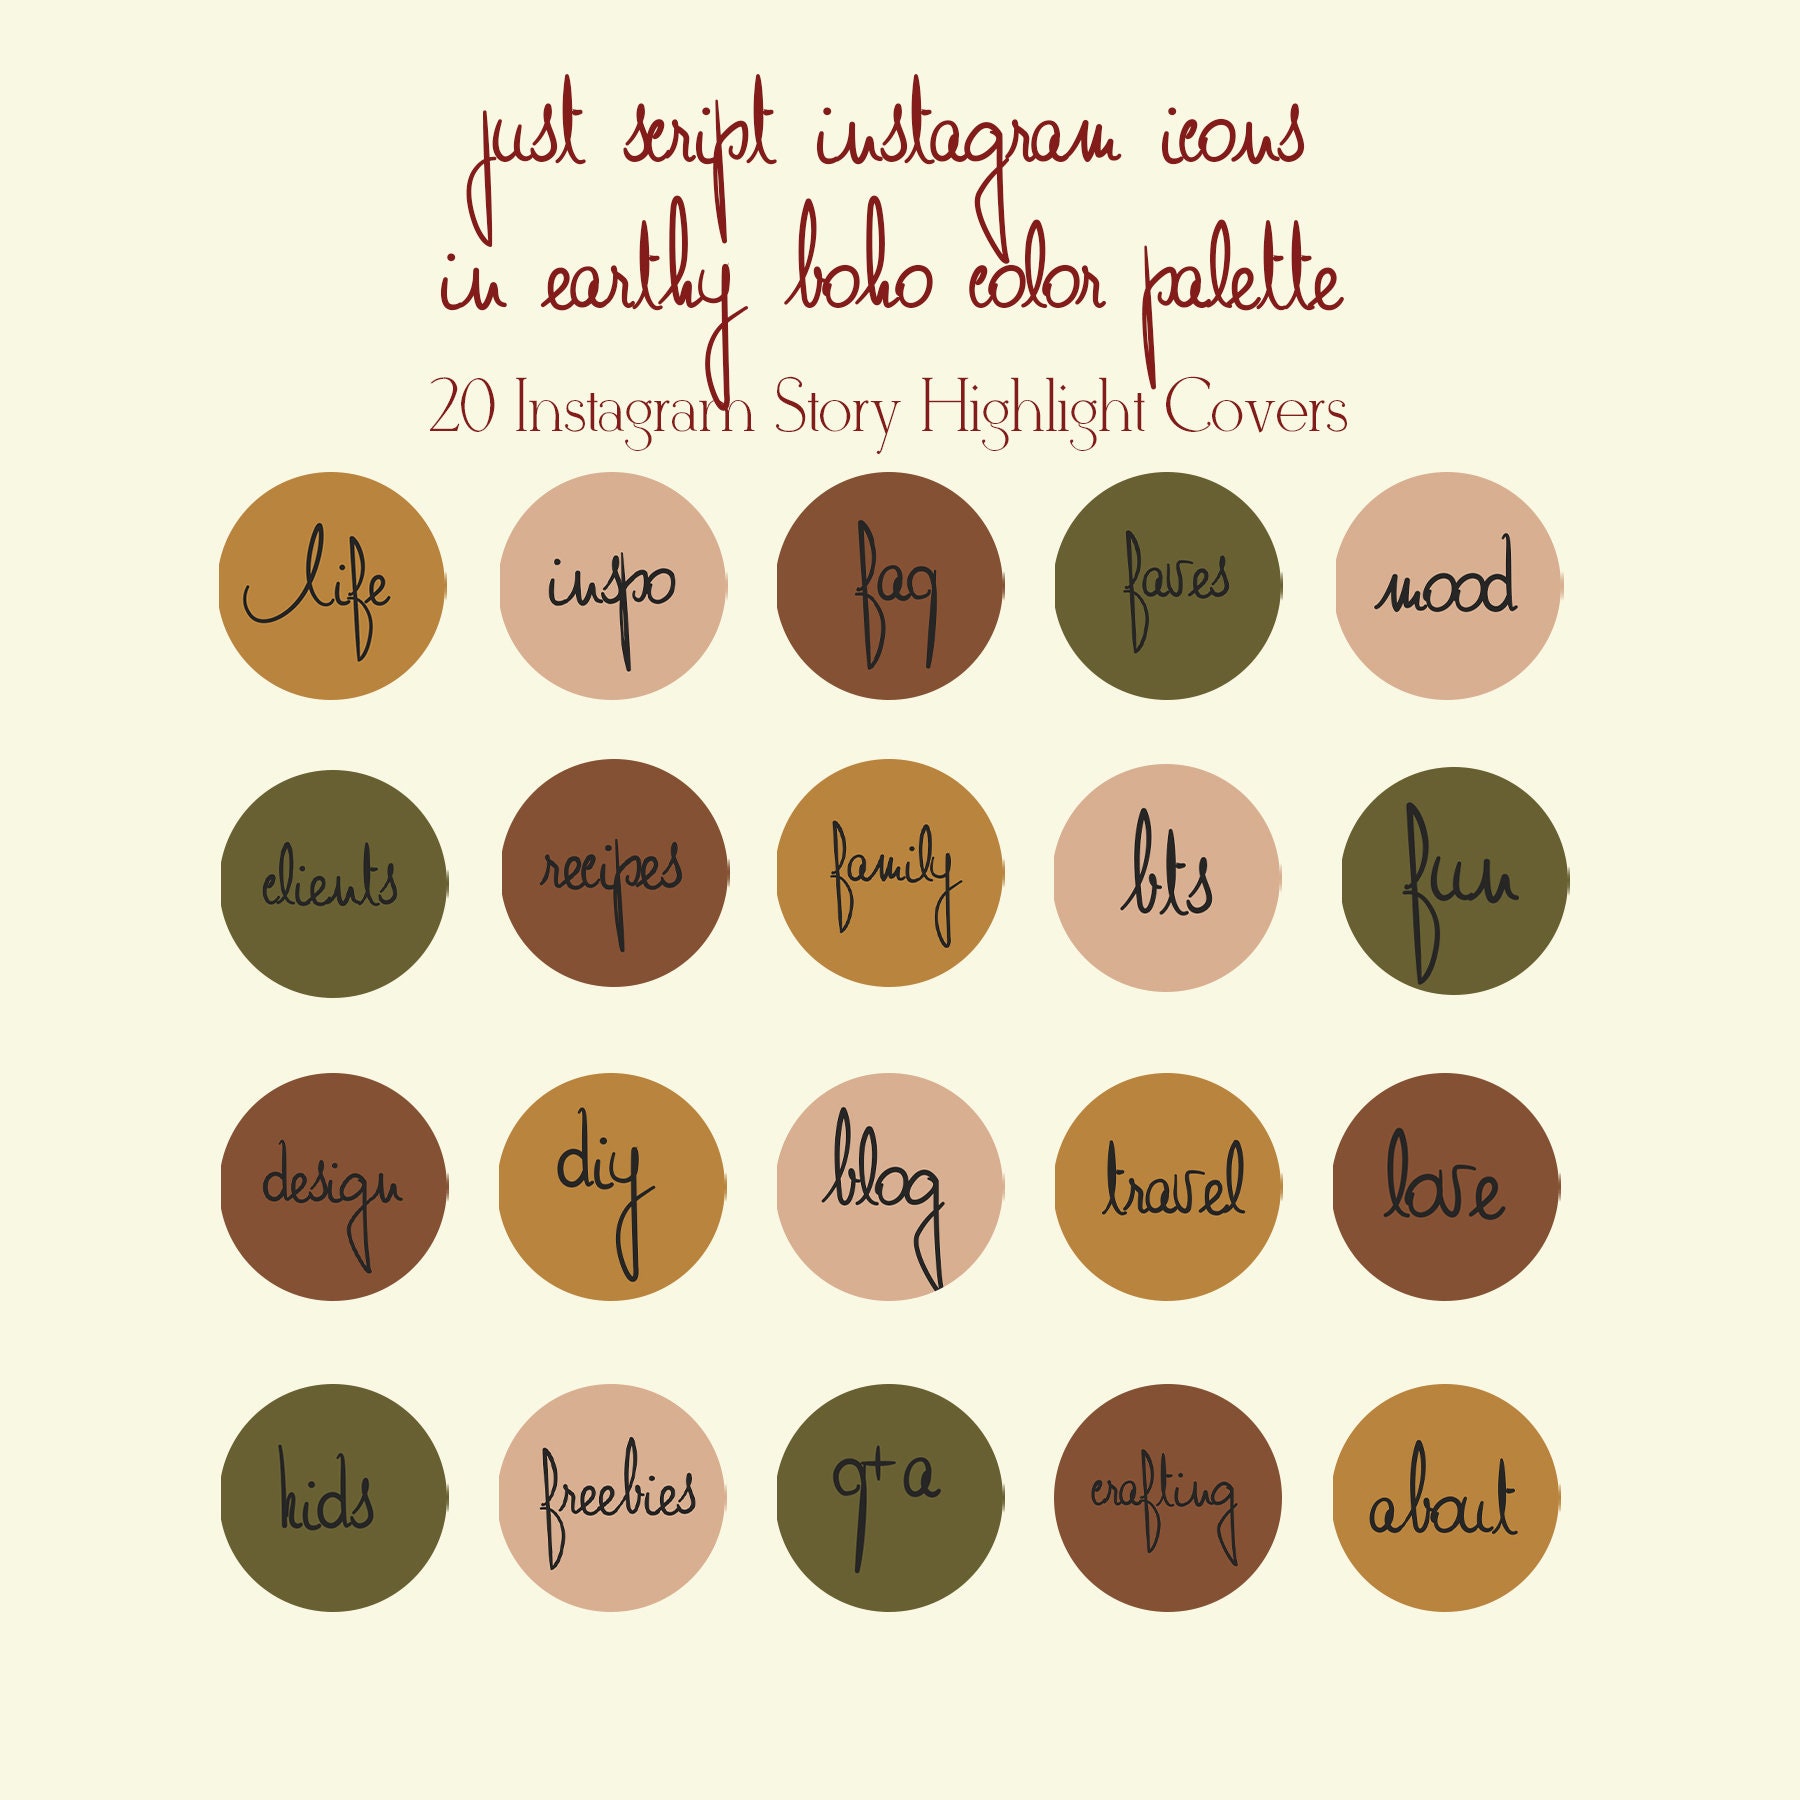 just script instagram icons
in earthy boho color palette
20 Instagram Story Highlight Covers
life
inspo
faq
faves
mood
clients
recipes
family
bts
fun
design
diy
blog
travel
love
kids
freebies
q+a
crafting
about